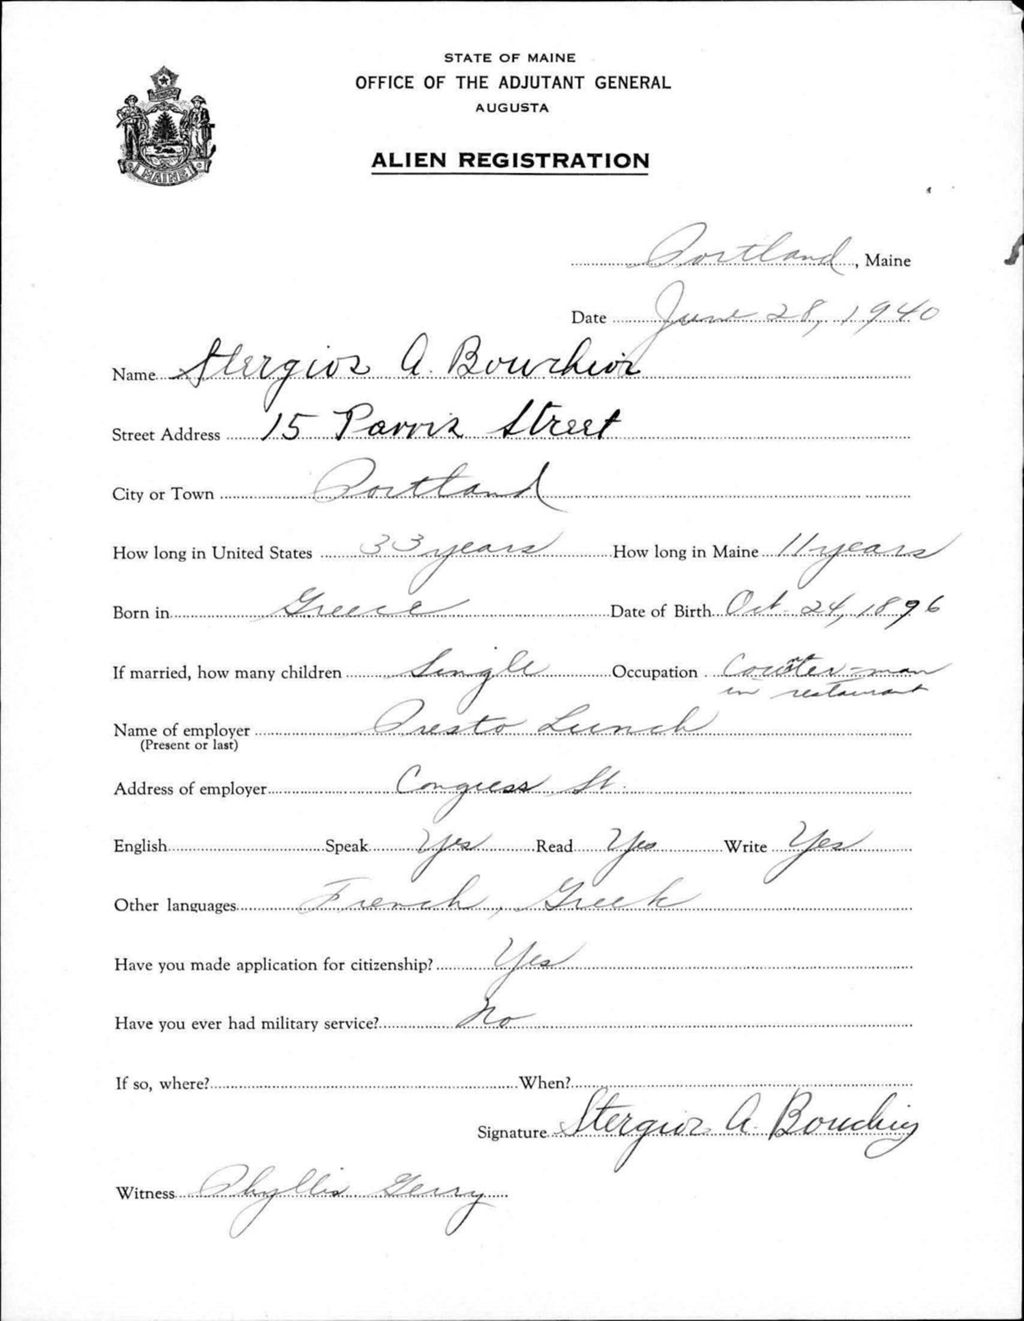 STATE OF MAINE
OFFICE OF THE ADJUTANT GENERAL
AUGUSTA
ALIEN REGISTRATION
MAINE
Portland, Maine
Date June 28, 1940
Name Stergios A.
Street Address 15 Parris Street
City or Town Portland
How long in United States 33 years How long in Maine 11 years
Born in Greece Date of Birth Oct. 24, 1896
If married, how many children Single Occupation Counter-man
in restaurant
Name of employer Presto Lunch
(Present or last)
Address of employer Congress St.
English Speak Yes Read Yes Write Yes
Other languages French, Greek
Have you made application for citizenship? Yes
Have you ever had military service? No
If so, where? When?
Signature Stergios A.
Witness Phyllis Gerry